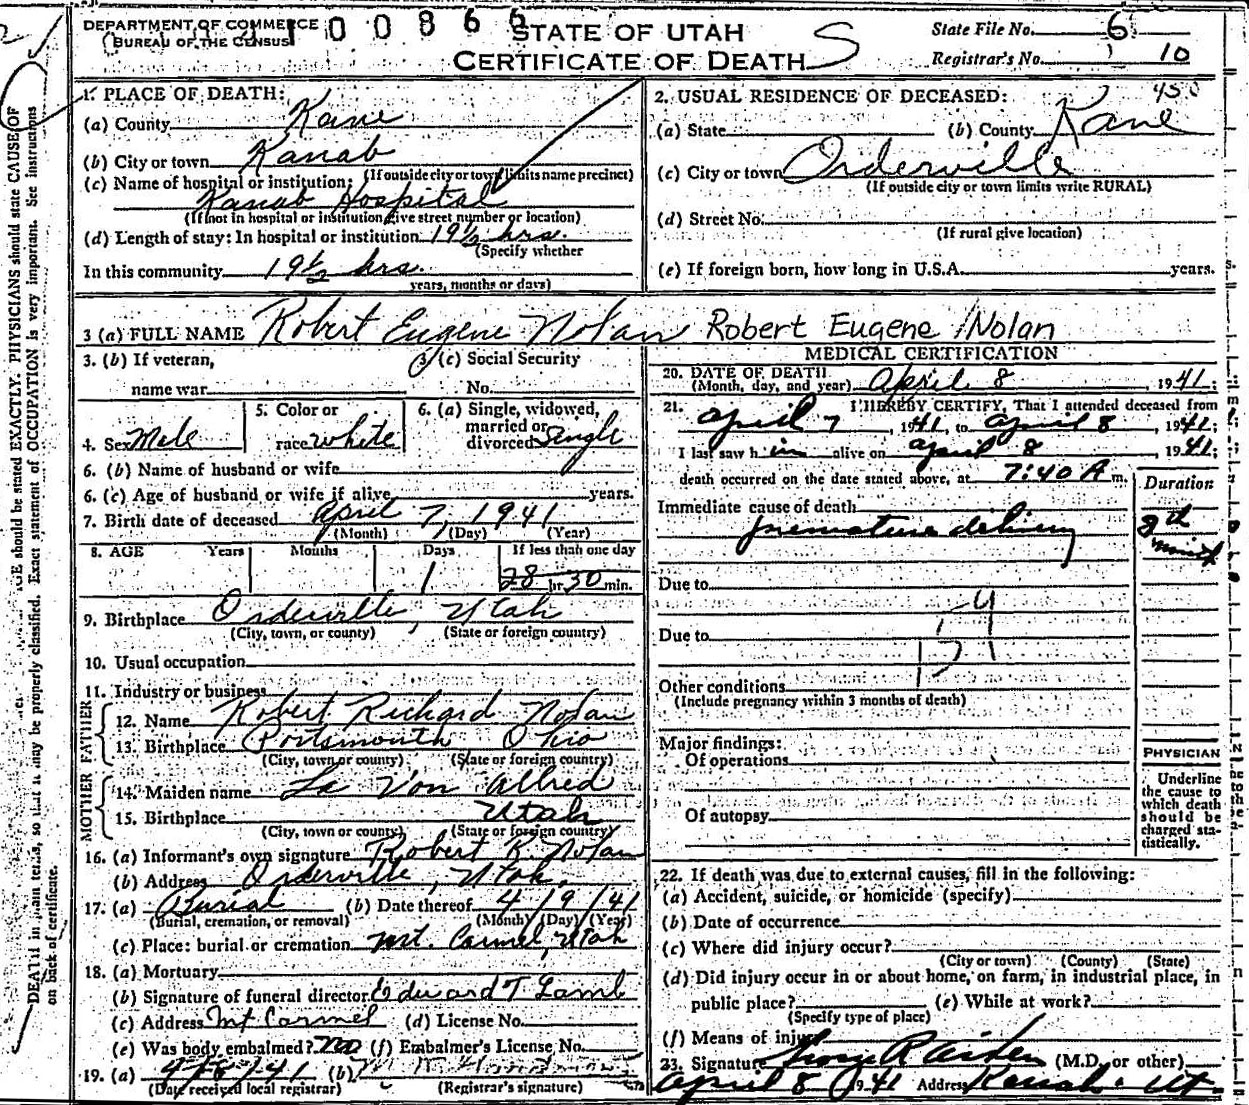 DEPARTMENT OF COMMERCE
BUREAU OF THE CENSUS
00866
STATE OF UTAH
CERTIFICATE OF DEATH
State File No. 6
Registrar's No. 10
1. PLACE OF DEATH:
(a) County Kane
(b) City or town Kanab
(If outside city or town limits name precinct)
(c) Name of hospital or institution:
Kanab Hospital
(If not in hospital or institution give street number or location)
(d) Length of stay: In hospital or institution 19½ hrs.
(Specify whether
In this community 19½ hrs.
years, months or days)
2. USUAL RESIDENCE OF DECEASED: 450
(a) State (b) County Kane
(c) City or town Orderville
(If outside city or town limits write RURAL)
(d) Street No.
(If rural give location)
(e) If foreign born, how long in U.S.A. years.
3 (a) FULL NAME Robert Eugene Nolan Robert Eugene Nolan
3. (b) If veteran,
name war
3 (c) Social Security
No.
4. Sex Male
5. Color or
race white
6. (a) Single, widowed,
married or
divorced Single
6. (b) Name of husband or wife
6. (c) Age of husband or wife if alive years.
7. Birth date of deceased April 7, 1941
(Month) (Day) (Year)
8. AGE Years Months Days If less than one day
1 28 hr. 30 min.
9. Birthplace Orderville, Utah
(City, town, or county) (State or foreign country)
10. Usual occupation
11. Industry or business
FATHER
12. Name Robert Richard Nolan
13. Birthplace Portsmouth Ohio
(City, town or county) (State or foreign country)
MOTHER
14. Maiden name La Von Allred
15. Birthplace Utah
(City, town or county) (State or foreign country)
16. (a) Informant's own signature Robert R. Nolan
(b) Address Orderville, Utah.
17. (a) Burial (b) Date thereof 4/9/41
(Burial, cremation, or removal) (Month) (Day) (Year)
(c) Place: burial or cremation Mt. Carmel, Utah
18. (a) Mortuary
(b) Signature of funeral director Edward T Lamb
(c) Address Mt Carmel (d) License No.
(e) Was body embalmed? No (f) Embalmer's License No.
19. (a) 4/8/41 (b)
(Date received local registrar) (Registrar's signature)
MEDICAL CERTIFICATION
20. DATE OF DEATH
(Month, day, and year) April 8, 1941;
21. I HEREBY CERTIFY, That I attended deceased from
April 7, 1941, to April 8, 1941;
I last saw him alive on April 8, 1941;
death occurred on the date stated above, at 7:40 A m.
Duration
Immediate cause of death
premature delivery
Due to
Due to
Other conditions
(Include pregnancy within 3 months of death)
Major findings:
Of operations
Of autopsy
PHYSICIAN
Underline
the cause to
which death
should be
charged sta-
tistically.
22. If death was due to external causes, fill in the following:
(a) Accident, suicide, or homicide (specify)
(b) Date of occurrence
(c) Where did injury occur?
(City or town) (County) (State)
(d) Did injury occur in or about home, on farm, in industrial place, in
public place? (e) While at work?
(Specify type of place)
(f) Means of injury
23. Signature George R Aiken (M.D. or other)
April 8 1941 Address Kanab. Ut.
AGE should be stated EXACTLY. PHYSICIANS should state CAUSE OF
DEATH in plain terms, so that it may be properly classified. Exact statement of OCCUPATION is very important. See instructions
on back of certificate.